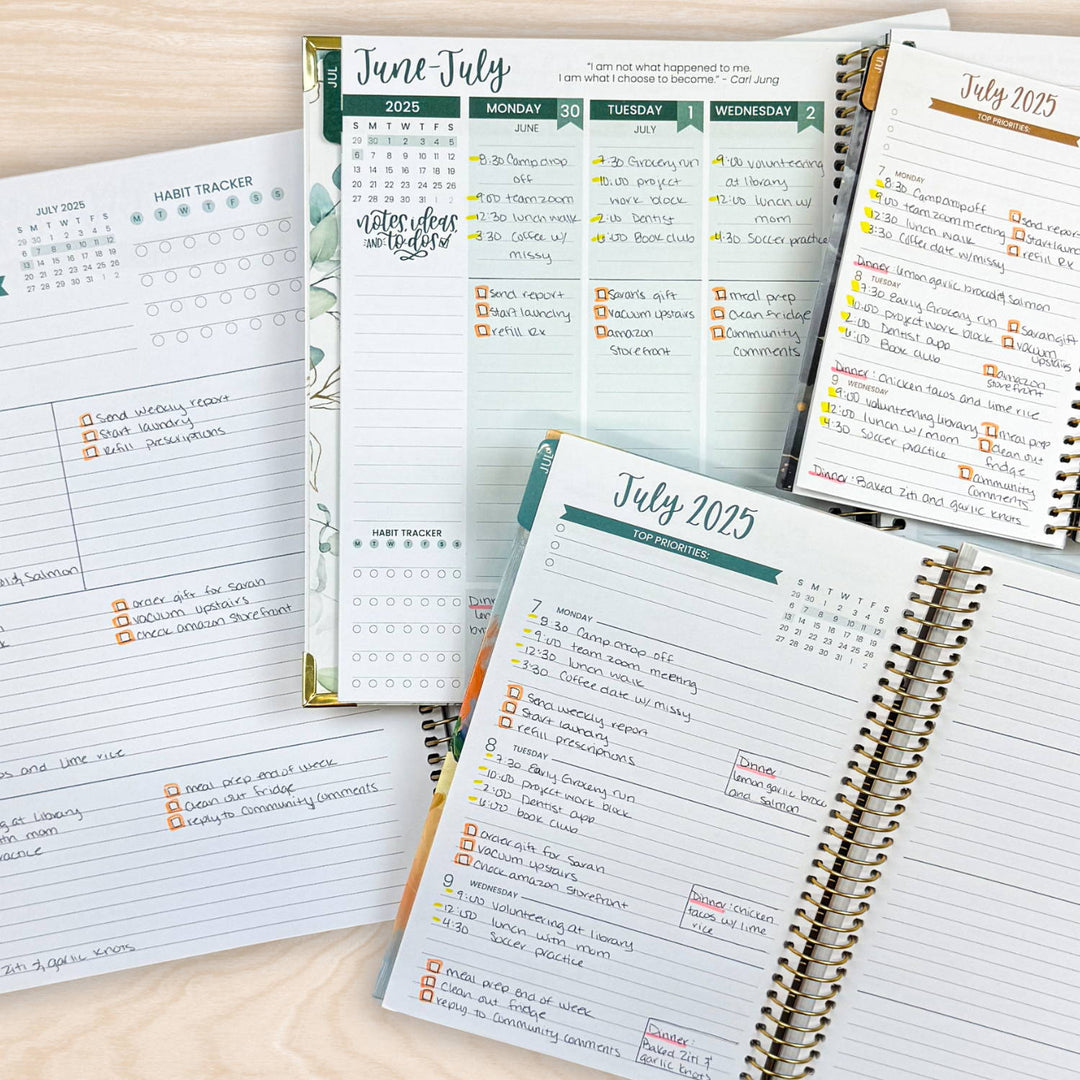 JULY 2025
S M T W T F S
29 30 1 2 3 4 5
6 7 8 9 10 11 12
13 14 15 16 17 18 19
20 21 22 23 24 25 26
27 28 29 30 31 1 2
HABIT TRACKER
M T W T F S S
Send weekly report
Start laundry
Refill prescriptions
& Salmon
order gift for Sarah
vacuum upstairs
check amazon storefront
and lime rice
meal prep end of week
clean out fridge
reply to community comments
at Library
with mom
practice
ziti & garlic knots
JUL
June-July
"I am not what happened to me.
I am what I choose to become." - Carl Jung
2025
S M T W T F S
29 30 1 2 3 4 5
6 7 8 9 10 11 12
13 14 15 16 17 18 19
20 21 22 23 24 25 26
27 28 29 30 31 1 2
notes, ideas,
AND to dos
HABIT TRACKER
M T W T F S S
MONDAY 30
JUNE
8:30 Camp drop
off
9:00 team zoom
12:30 lunch walk
3:30 Coffee w/
missy
send report
start laundry
refill Rx
Dinn
lem
br
TUESDAY 1
JULY
7:30 Grocery run
10:00 project
work block
2:00 Dentist
6:00 Book club
Sarah's gift
vacuum upstairs
amazon
Storefront
WEDNESDAY 2
9:00 volunteering
at library
12:00 lunch w/
mom
4:30 Soccer practice
meal prep
clean fridge
Community
comments
JUL
July 2025
TOP PRIORITIES:
7 MONDAY
8:30 Camp drop off
9:00 team zoom meeting
12:30 lunch walk
3:30 Coffee date w/missy
send report
start laun
refill Rx
Dinner: lemon garlic broccoli & Salmon
8 TUESDAY
7:30 Early Grocery run
10:00 project work block
2:00 Dentist app
6:00 Book club
sarah gift
vacuum
upstairs
amazon
storefront
Dinner: chicken tacos and lime rice
9 WEDNESDAY
9:00 volunteering library
12:00 lunch w/ mom
4:30 Soccer practice
meal prep
clean out
fridge
community
comments
Dinner: Baked ziti and garlic knots
JUL
July 2025
TOP PRIORITIES:
S M T W T F S
29 30 1 2 3 4 5
6 7 8 9 10 11 12
13 14 15 16 17 18 19
20 21 22 23 24 25 26
27 28 29 30 31 1 2
7 MONDAY
8:30 Camp drop off
9:00 team zoom meeting
12:30 lunch walk
3:30 Coffee date w/ missy
Send weekly report
start laundry
refill prescriptions
Dinner
lemon garlic brocc
and salmon
8 TUESDAY
7:30 Early Grocery run
10:00 project work block
2:00 Dentist app
6:00 book club
order gift for Sarah
vacuum upstairs
check amazon storefront
Dinner: chicken
tacos w/ lime
rice
9 WEDNESDAY
9:00 volunteering at library
12:00 lunch with mom
4:30 Soccer practice
meal prep end of week
clean out fridge
reply to community comments
Dinner:
Baked Ziti &
garlic knots